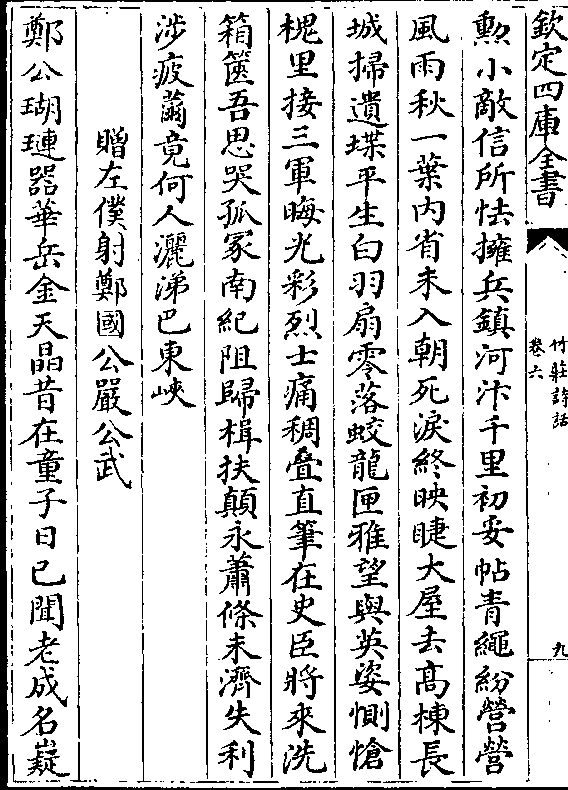 欽定四庫全書
竹莊詩話
卷六
九
勲小敵信所怯擁兵鎮河汴千里初妥帖青繩紛營營
風雨秋一葉内省未入朝死淚終映睫大屋去髙棟長
城掃遺堞平生白羽扇零落蛟龍匣雅望與英姿惻愴
槐里接三軍晦光彩烈士痛稠疊直筆在史臣將來洗
箱篋吾思哭孤冢南紀阻歸楫扶顛永蕭條未濟失利
涉疲薾竟何人灑涕巴東峽
贈左僕射鄭國公嚴公武
鄭公瑚璉器華岳金天晶昔在童子日已聞老成名嶷